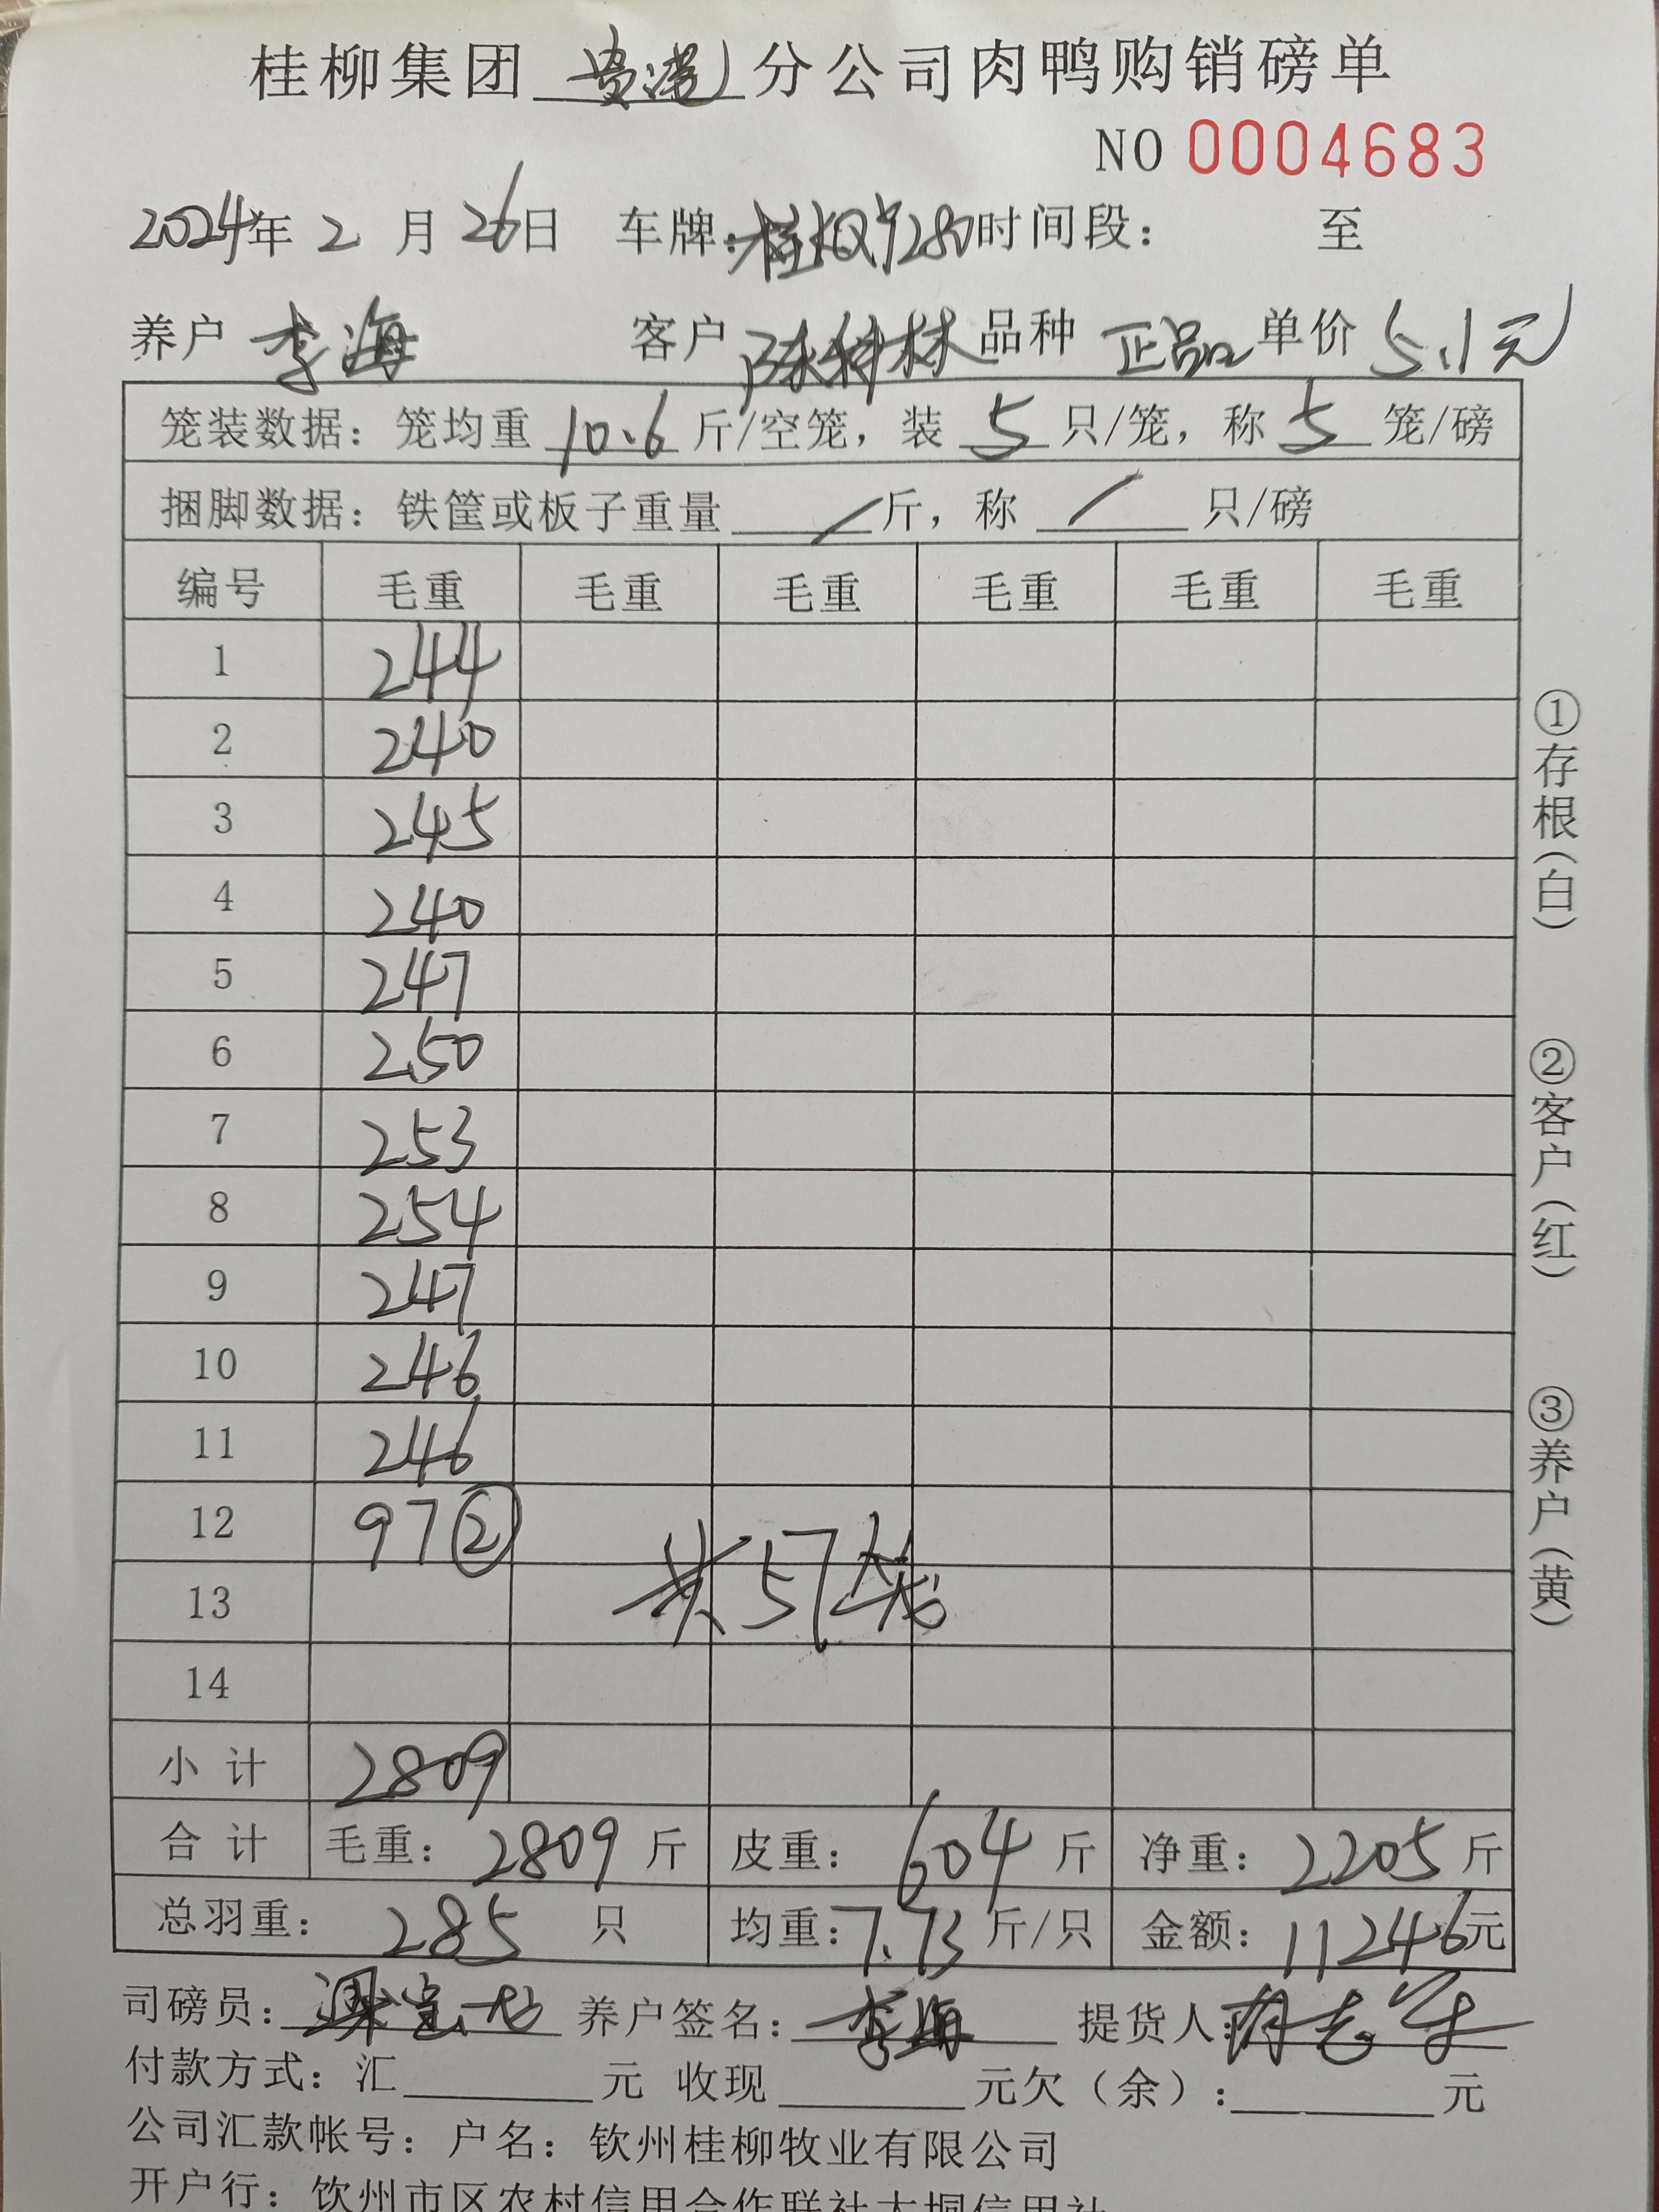 桂柳集团 贵港 分公司肉鸭购销磅单
NO 0004683
2024年 2 月 26日 车牌: 时间段: 至
养户 李海 客户 陈林林 品种 正品 单价 5.1元
笼装数据: 笼均重 10.6 斤/空笼, 装 5 只/笼, 称 5 笼/磅
捆脚数据: 铁筐或板子重量 / 斤, 称 / 只/磅
编号 毛重 毛重 毛重 毛重 毛重 毛重
1 244
2 240
3 245
4 240
5 247
6 250
7 253
8 254
9 247
10 246
11 246
12 97 ②
共57笼
13
14
小 计 2809
合 计 毛重: 2809 斤 皮重: 604 斤 净重: 2205 斤
总羽重: 285 只 均重: 7.73 斤/只 金额: 11246元
司磅员: 养户签名: 李海 提货人:
付款方式: 汇 元 收现 元欠(余): 元
公司汇款帐号: 户名: 钦州桂柳牧业有限公司
开户行: 钦州市区农村信用合作联社大垌信用社
①存根(白)
②客户(红)
③养户(黄)